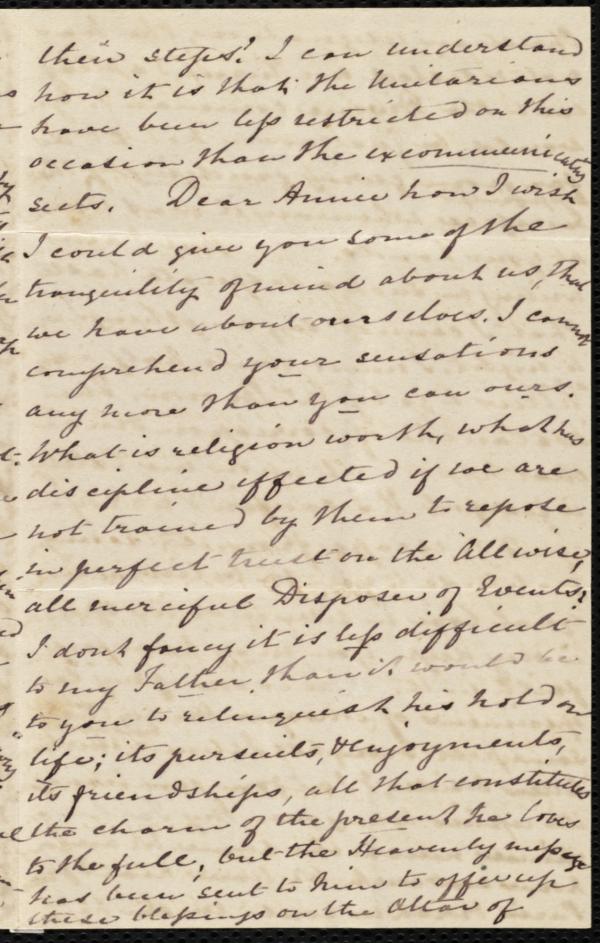 their steps? I can understand
how it is that the Unitarians
have been less restricted on this
occasion than the excommunicating
sects. Dear Annie how I wish
I could give you some of the
tranquility of mind about us, that
we have about ourselves. I cannot
comprehend your sensations
any more than you can ours.
What is religion worth, what has
discipline effected if we are
not trained by them to repose
in perfect trust on the All wise,
all merciful Disposer of Events?
I dont fancy it is less difficult
to my Father than it would be
to you to relinquish his hold on
life; its pursuits, & enjoyments,
its friendships, all that constitutes
the charm of the present he loves
to the full, but the Heavenly message
has been sent to him to offer up
these blessings on the Altar of